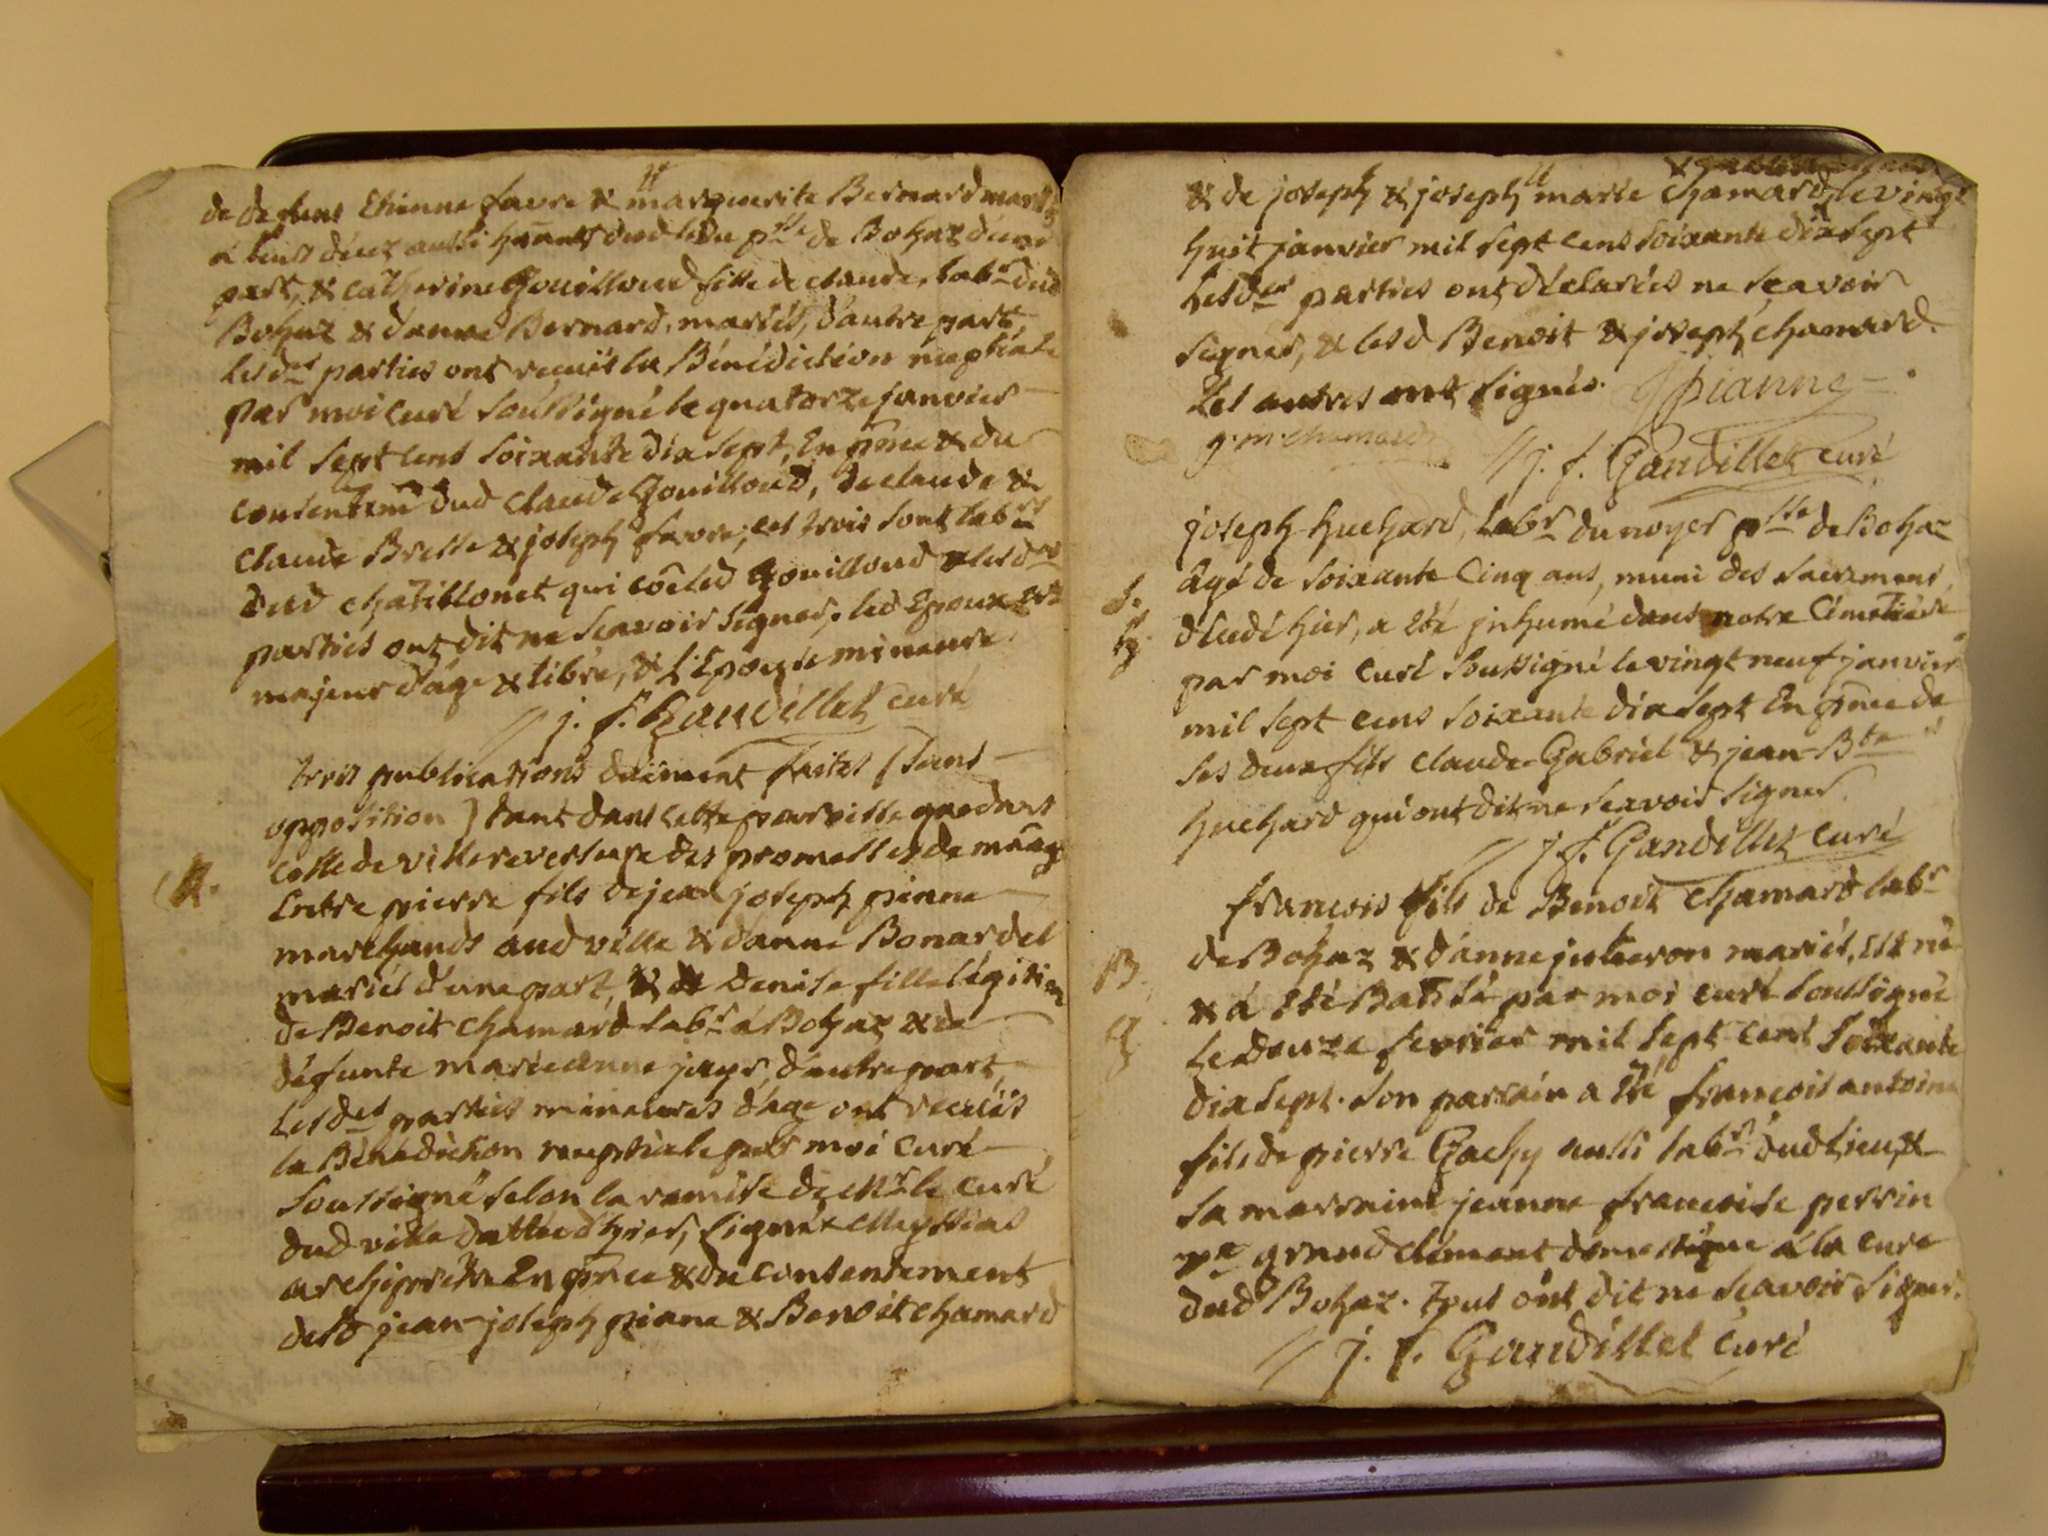 de defens Etienne favre & marguerite Bernard mariés
á leurs deux aussi hants dud lieu psse de Bohaz d'une
part, & catherine Gouilloud fille de claude, labr dud
Bohaz & d'anne Bernard, mariés, d'autre part,
lesdes parties ont reçuës la Bénédiction nuptiale
par moi curé soussigné le quatorze janvier
mil sept cens soixante dix sept, En pnce & du
consentemt dud claude Gouilloud, de claude &
claude Brelle & joseph favre; ces trois sont labrs
dud chatillonet qui côe led Gouilloud & lesdes
parties ont dit ne sçavoir signer, led Epoux est
majeur d'age & libre, & l'Epouse mineure.
j. f. Gandillet curé
trois publications düement faites (sans
opposition) tant dans cette parroisse que dans
celle de villereversure des promesses de mãage
M.
Entre pierre fils de jean joseph pianne
marchands aud ville & d'anne Bonardel
mariés d'une part, & de denise fille légitime
de Benoit chamard labr á Bohaz & de
défunte marieanne jays, d'autre part,
lesdes parties mineures d'age ont reçuës
la Bénédiction nuptiale par moi curé
soussigné selon la remise de Mr le curé
dud ville dattée d'hyer, signée
archiprêtre En pnce & du consentement
desd jean-joseph piane & Benoit chamard
& de joseph & joseph marie chamard, le vingt
huit janvier mil sept cens soixante dix sept
lesdes parties ont déclarées ne sçavoir
signer, & lesd Benoit & joseph chamard.
Les autres ont signés. Jpianne
g. m. chamard
j. f. Gandillet curé
joseph huchard, labr du noyer psse de Bohaz
âgé de soixante Cinq ans, muni des sacremens,
S.
h.
dcedé hier, a été jnhumé dans notre Cimetière
par moi curé soussigné le vingt neuf janvier
mil sept cens soixante dix sept En pnce de
ses deux fils claude-Gabriel & jean-Bte
huchard qui ont dit ne sçavoir signer
j. f. Gandillet curé
françois fils de Benoit chamard labr
de Bohaz & d'anne juteron mariés, est né
B.
& á été Batisé par moi curé soussigné
le douze fevrier mil sept cens soixante
dix sept. son parrain a été françois antoine
fils de pierre Gachy aussi labr dud lieu, &
sa marraine jeanne françoise perrin
grand clément domestique á la cure
dud Bohaz. tous ont dit ne sçavoir signer.
j. f. Gandillet curé